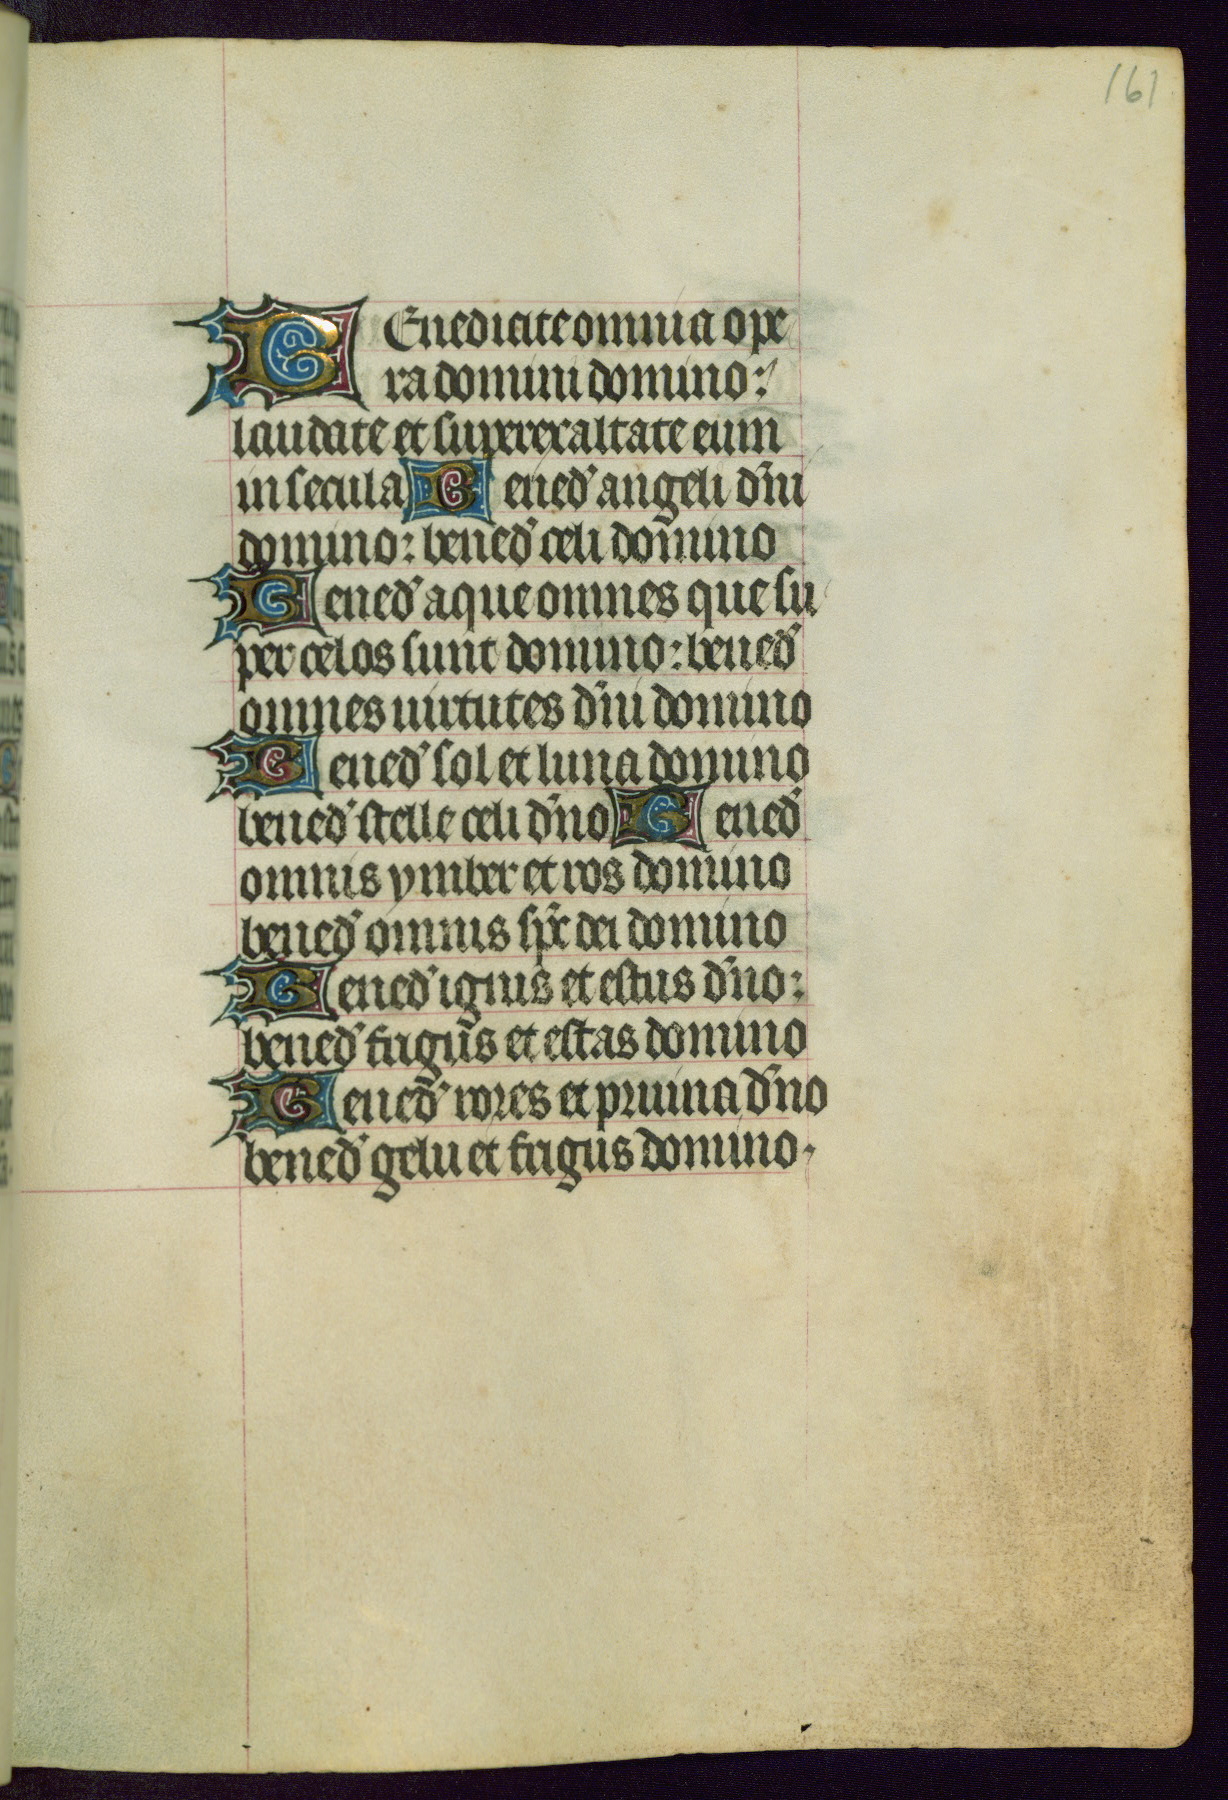 161
BEnedicite omnia ope
ra domini domino:
laudate et superexaltate eum
in secula Bened̾ angeli dn̄i
domino: bened̾ celi domino
Bened̾ aque omnes que su
per celos sunt domino: bened̾
omnes uirtutes dn̄i domino
Bened̾ sol et luna domino
bened̾ stelle celi dn̄o Bened̾
omnis ymber et ros domino
bened̾ omnis sp̄c dei domino
Bened̾ ignis et estus dn̄o:
bened̾ frigus et estas domino
Bened̾ rores et pruina dn̄o
bened̾ gelu et frigus domino.